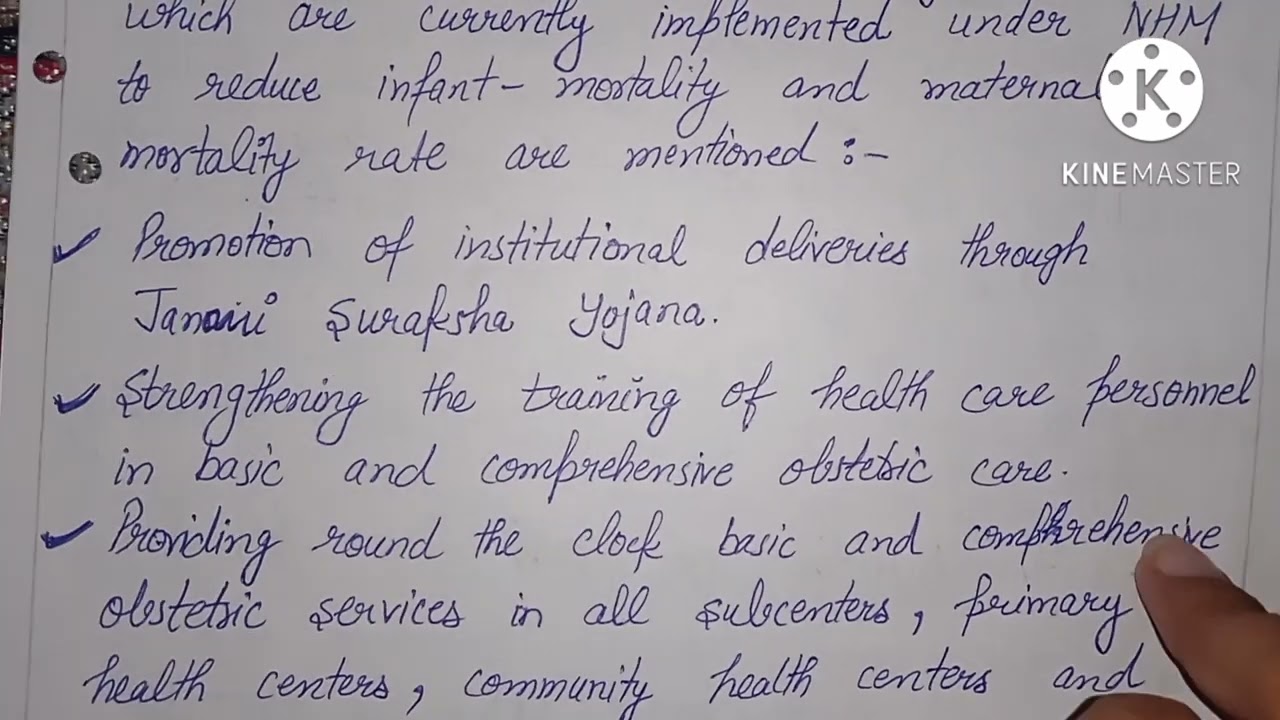 which are currently implemented under NHM
to reduce infant- mortality and maternal
mortality rate are mentioned :-
Promotion of institutional deliveries through
Janani Suraksha Yojana.
Strengthening the training of health care personnel
in basic and comprehensive obstetric care.
Providing round the clock basic and comprehensive
obstetric services in all subcenters, primary
health centers, community health centers and
K
KINEMASTER